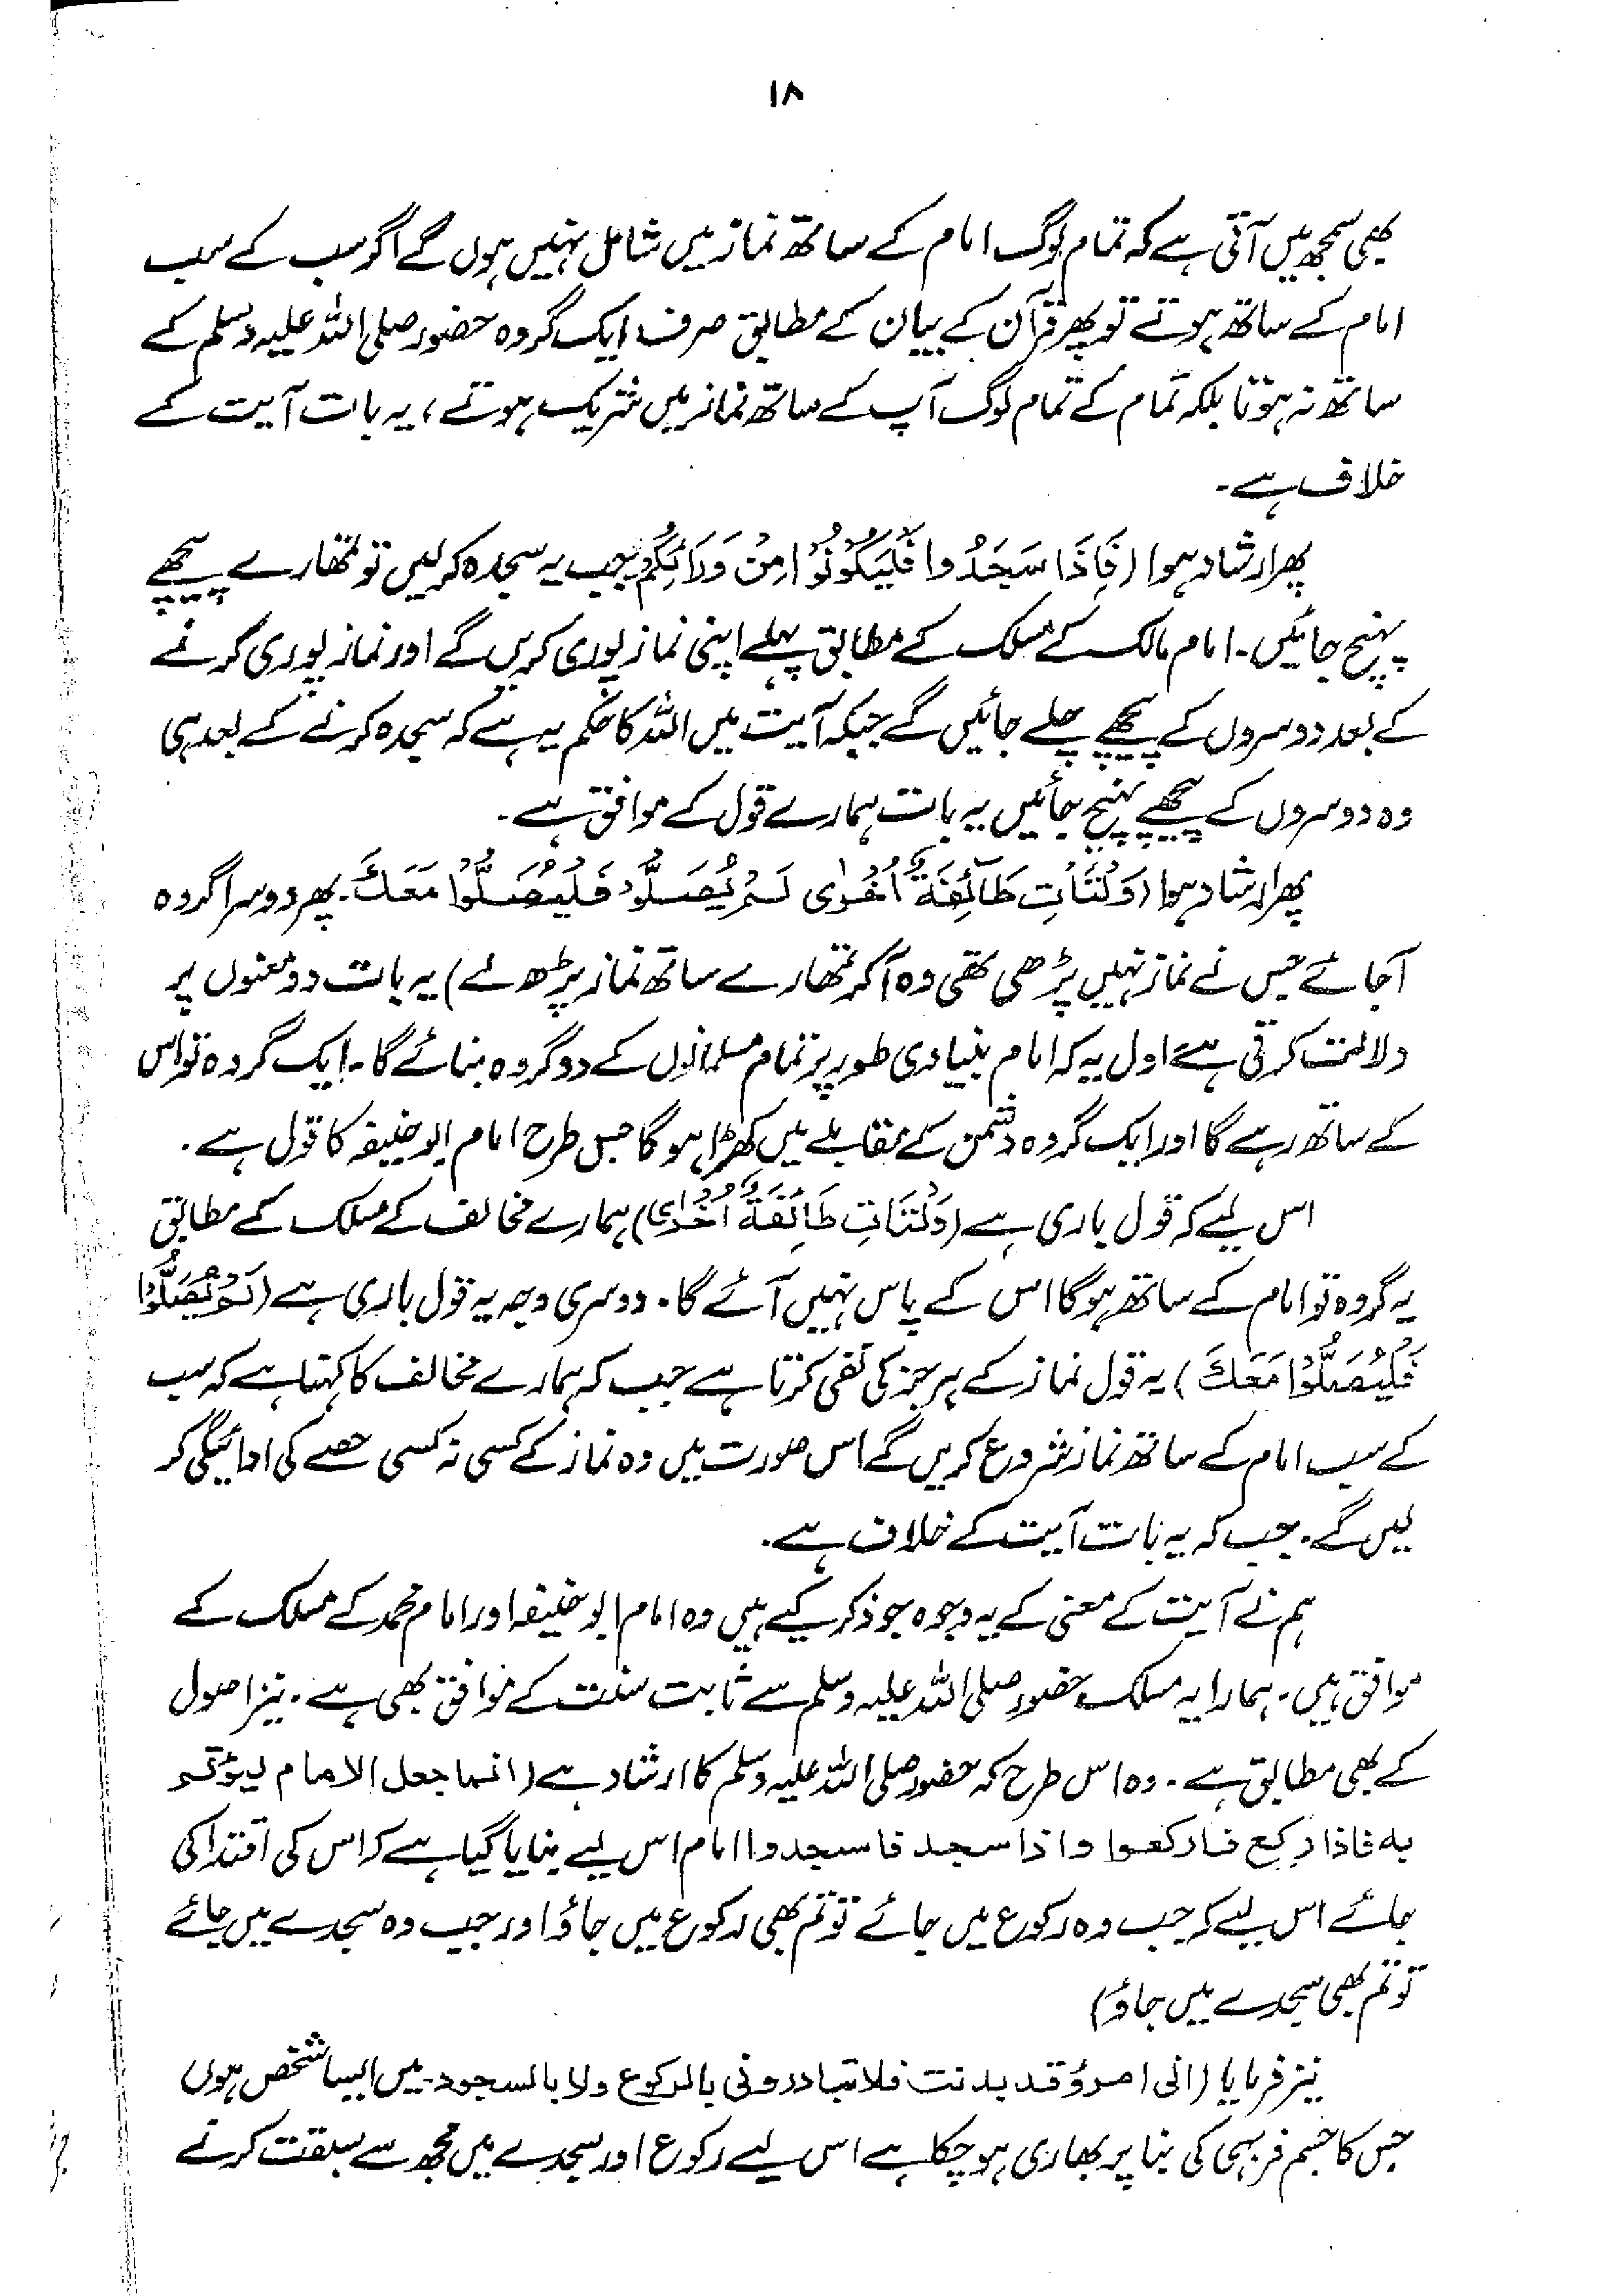 ۱۸
بھی سمجھ میں آتی ہے کہ تمام لوگ امام کے ساتھ نماز میں شامل نہیں ہوں گے اگر سب کے سب
امام کے ساتھ ہوتے تو پھر قرآن کے بیان کے مطابق صرف ایک گروہ حضور صلی اللہ علیہ وسلم کے
ساتھ نہ ہوتا بلکہ تمام کے تمام لوگ آپ کے ساتھ نماز میں شریک ہوتے، یہ بات آیت کے
خلاف ہے۔
پھر ارشاد ہوا (فَاِذَا سَجَدُوا فَلْيَكُوْنُوْا مِنْ وَرَائِكُمْ جب یہ سجدہ کر لیں تو تمھارے پیچھے
پہنچ جائیں۔ امام مالک کے مسلک کے مطابق پہلے اپنی نماز پوری کریں گے اور نماز پوری کرنے
کے بعد دوسروں کے پیچھے چلے جائیں گے جبکہ آیت میں اللہ کا حکم یہ ہے کہ سجدہ کرنے کے بعد ہی
وہ دوسروں کے پیچھے پہنچ جائیں یہ بات ہمارے قول کے موافق ہے۔
پھر ارشاد ہوا (وَلْتَأْتِ طَآئِفَةٌ اُخْرٰى لَمْ يُصَلُّوْا فَلْيُصَلُّوْا مَعَكَ۔ پھر دوسرا گروہ
آجائے جس نے نماز نہیں پڑھی تھی وہ آکر تمھارے ساتھ نماز پڑھ لے) یہ بات دو معنوں پر
دلالت کرتی ہے اول یہ کہ امام بنیادی طور پر تمام مسلمانوں کے دو گروہ بنائے گا۔ ایک گروہ تو اس
کے ساتھ رہے گا اور ایک گروہ دشمن کے مقابلے میں کھڑا ہو گا جس طرح امام ابو حنیفہ کا قول ہے۔
اس لیے کہ قول باری ہے (وَلْتَأْتِ طَائِفَةٌ اُخْرٰى) ہمارے مخالف کے مسلک کے مطابق
یہ گروہ تو امام کے ساتھ ہو گا اس کے پاس نہیں آئے گا۔ دوسری وجہ یہ قول باری ہے (لَمْ يُصَلُّوْا
فَلْيُصَلُّوْا مَعَكَ) یہ قول نماز کے ہر جز کی نفی کرتا ہے جب کہ ہمارے مخالف کا کہنا ہے کہ سب
کے سب امام کے ساتھ نماز شروع کریں گے اس صورت میں وہ نماز کے کسی نہ کسی حصے کی ادائیگی کر
لیں گے۔ جب کہ یہ بات آیت کے خلاف ہے۔
ہم نے آیت کے معنی کے یہ وجوہ جو ذکر کیے ہیں وہ امام ابو حنیفہ اور امام محمد کے مسلک کے
موافق ہیں۔ ہمارا یہ مسلک حضور صلی اللہ علیہ وسلم سے ثابت سنت کے موافق بھی ہے۔ نیز اصول
کے بھی مطابق ہے۔ وہ اس طرح کہ حضور صلی اللہ علیہ وسلم کا ارشاد ہے (انما جعل الامام ليؤتم
به فاذا ركع فاركعوا واذا سجد فاسجدوا امام اس لیے بنایا گیا ہے کہ اس کی اقتدا کی
جائے اس لیے کہ جب وہ رکوع میں جائے تو تم بھی رکوع میں جاؤ اور جب وہ سجدے میں جائے
تو تم بھی سجدے میں جاؤ)
نیز فرمایا (انی امرؤ قد بدنت فلا تبادرونی بالركوع ولا بالسجود۔ میں ایسا شخص ہوں
جس کا جسم فربہی کی بنا پر بھاری ہو چکا ہے اس لیے رکوع اور سجدے میں مجھ سے سبقت کرنے